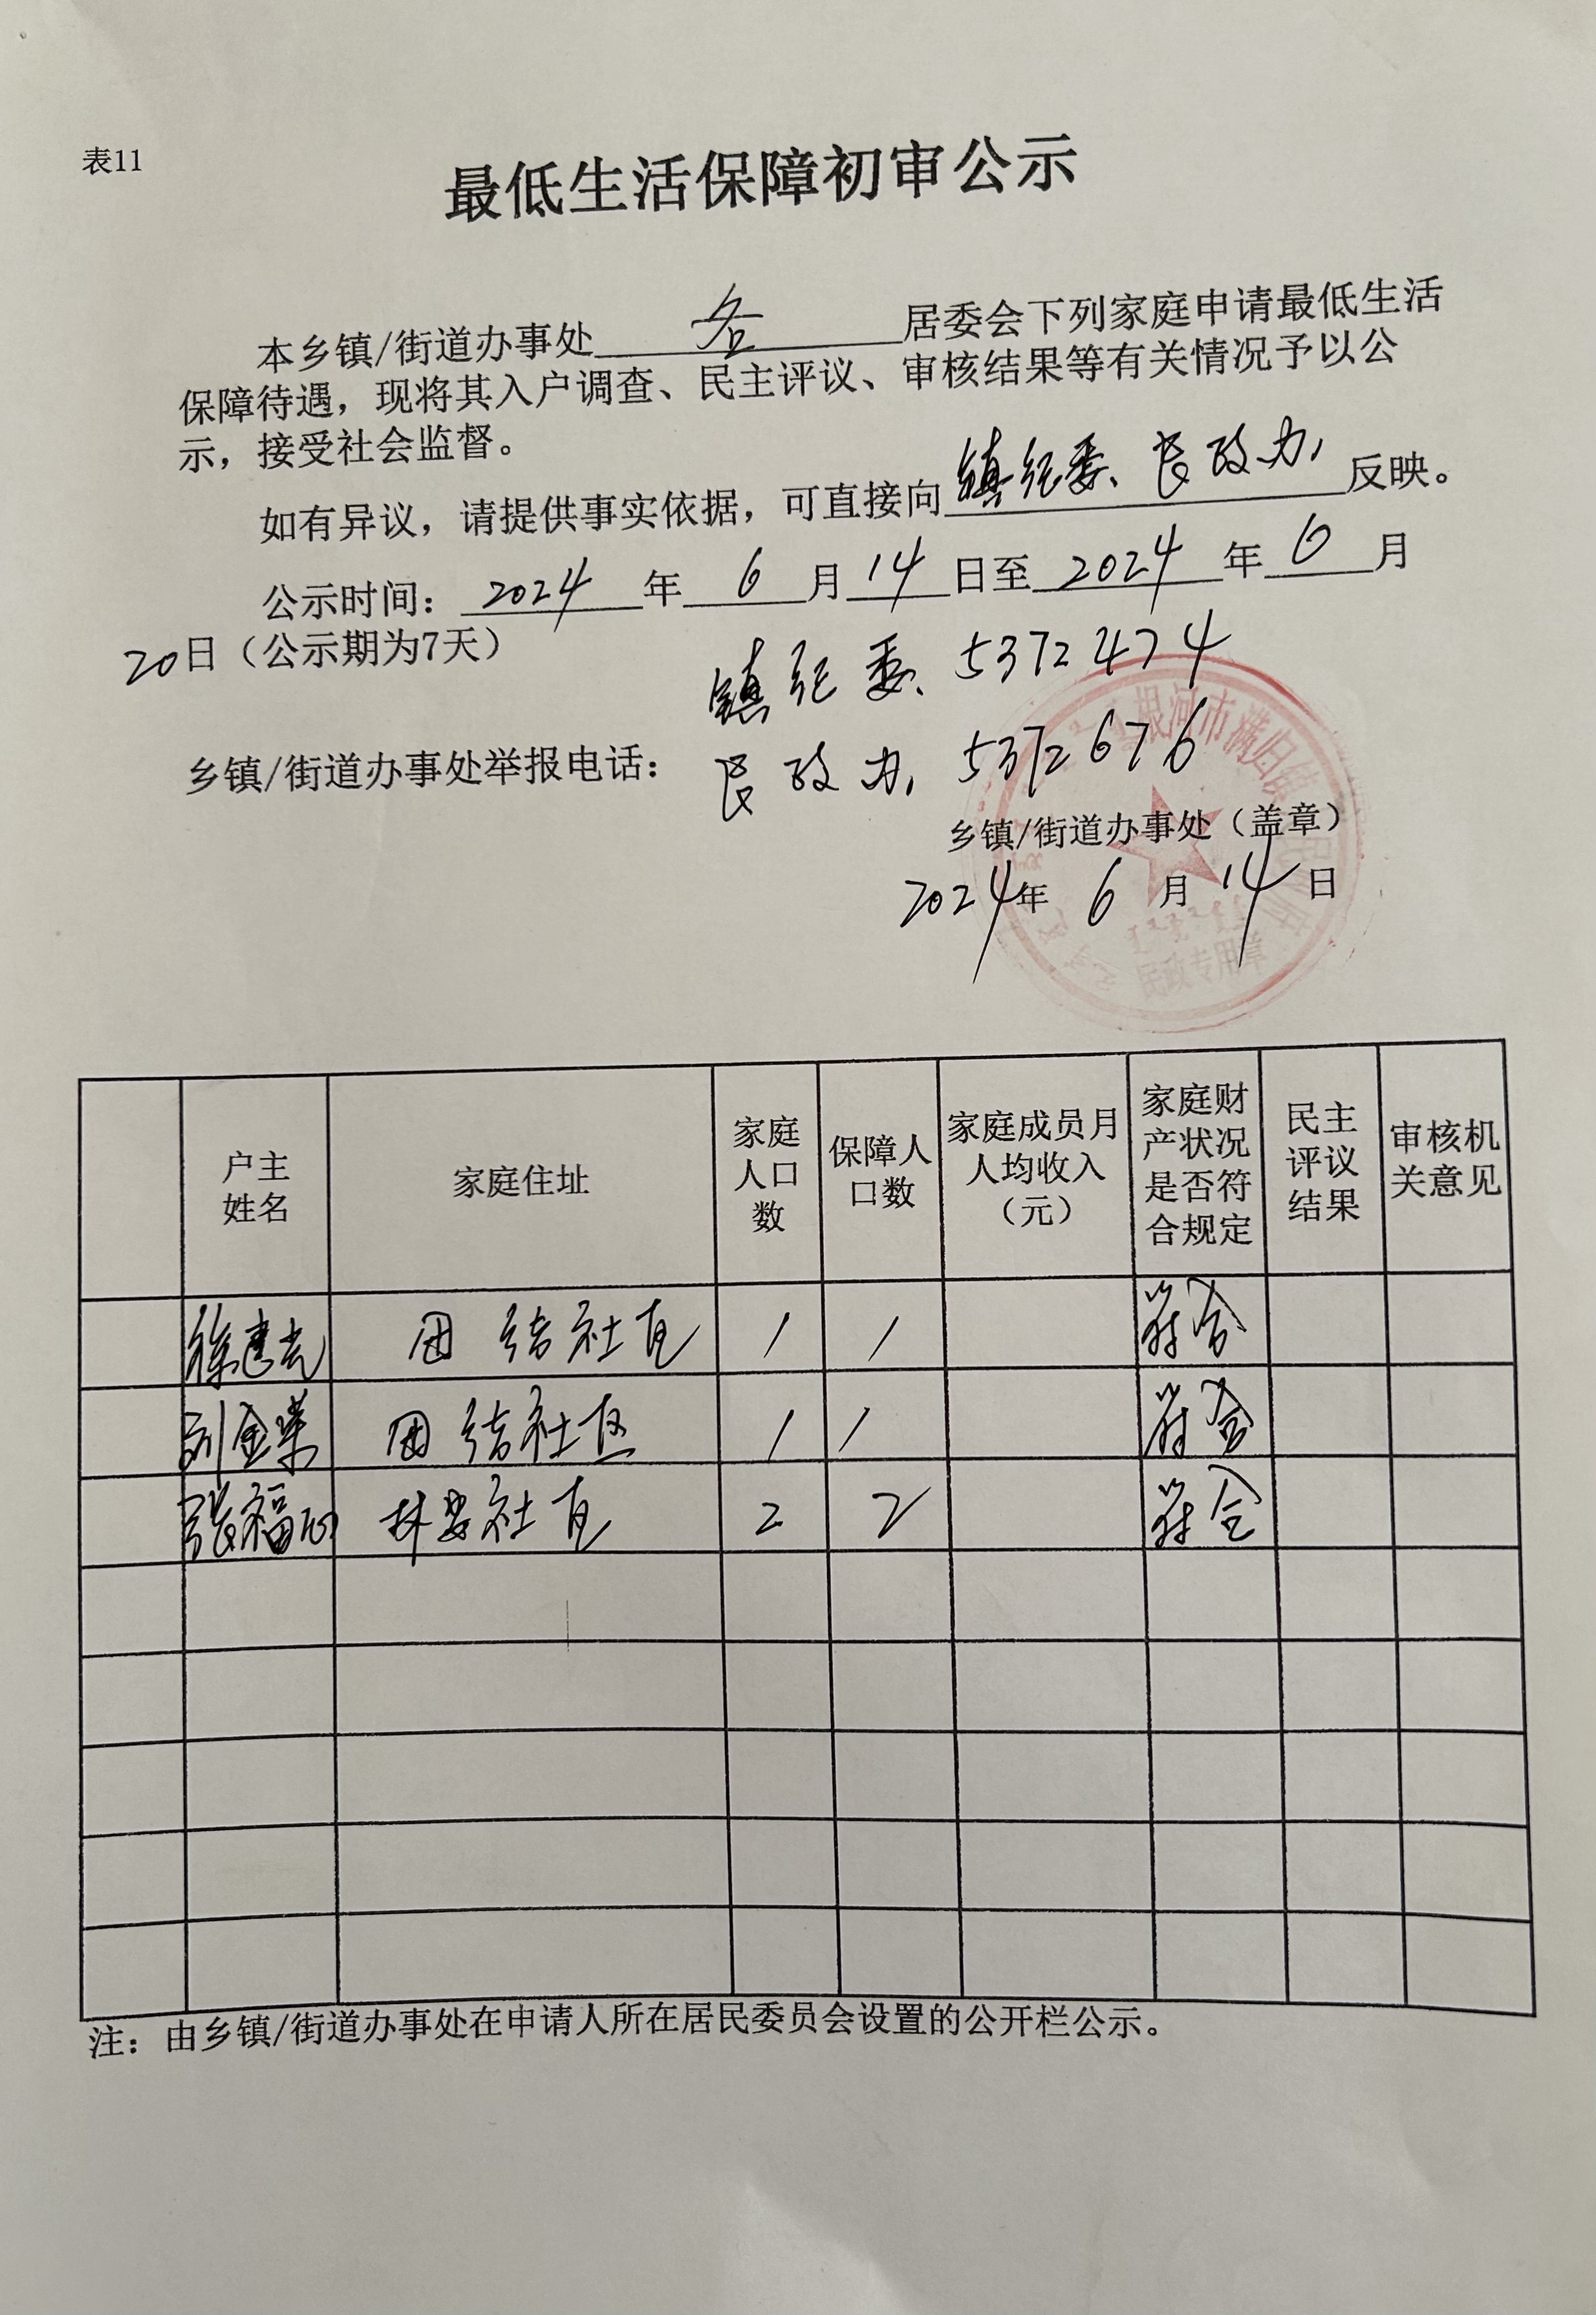 表11
最低生活保障初审公示
本乡镇/街道办事处 各 居委会下列家庭申请最低生活
保障待遇，现将其入户调查、民主评议、审核结果等有关情况予以公
示，接受社会监督。
如有异议，请提供事实依据，可直接向镇纪委、民政办反映。
公示时间：2024年6月14日至2024年6月
20日（公示期为7天）
镇纪委、5372474
乡镇/街道办事处举报电话：民政办 5372676
根河市满归镇
乡镇/街道办事处（盖章）
2024年6月14日
民政专用章
户主姓名 家庭住址 家庭人口数 保障人口数 家庭成员月人均收入（元） 家庭财产状况是否符合规定 民主评议结果 审核机关意见
徐建光 团结社区 1 1 符合
刘金荣 团结社区 1 1 符合
张福 林安社区 2 2 符合
注：由乡镇/街道办事处在申请人所在居民委员会设置的公开栏公示。